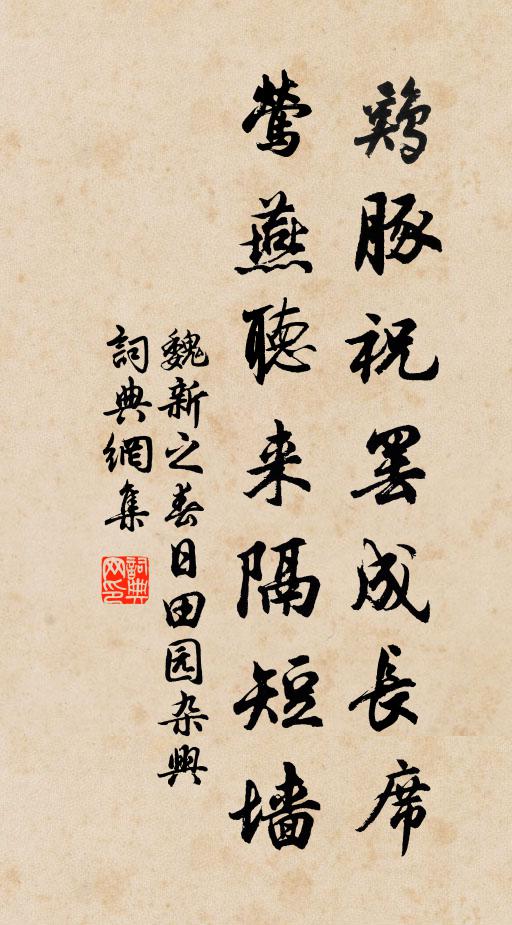 鷄豚祝罢成長席
鶯燕聽来隔短墙
魏新之春日田园杂興
詞典網集
詞典网印